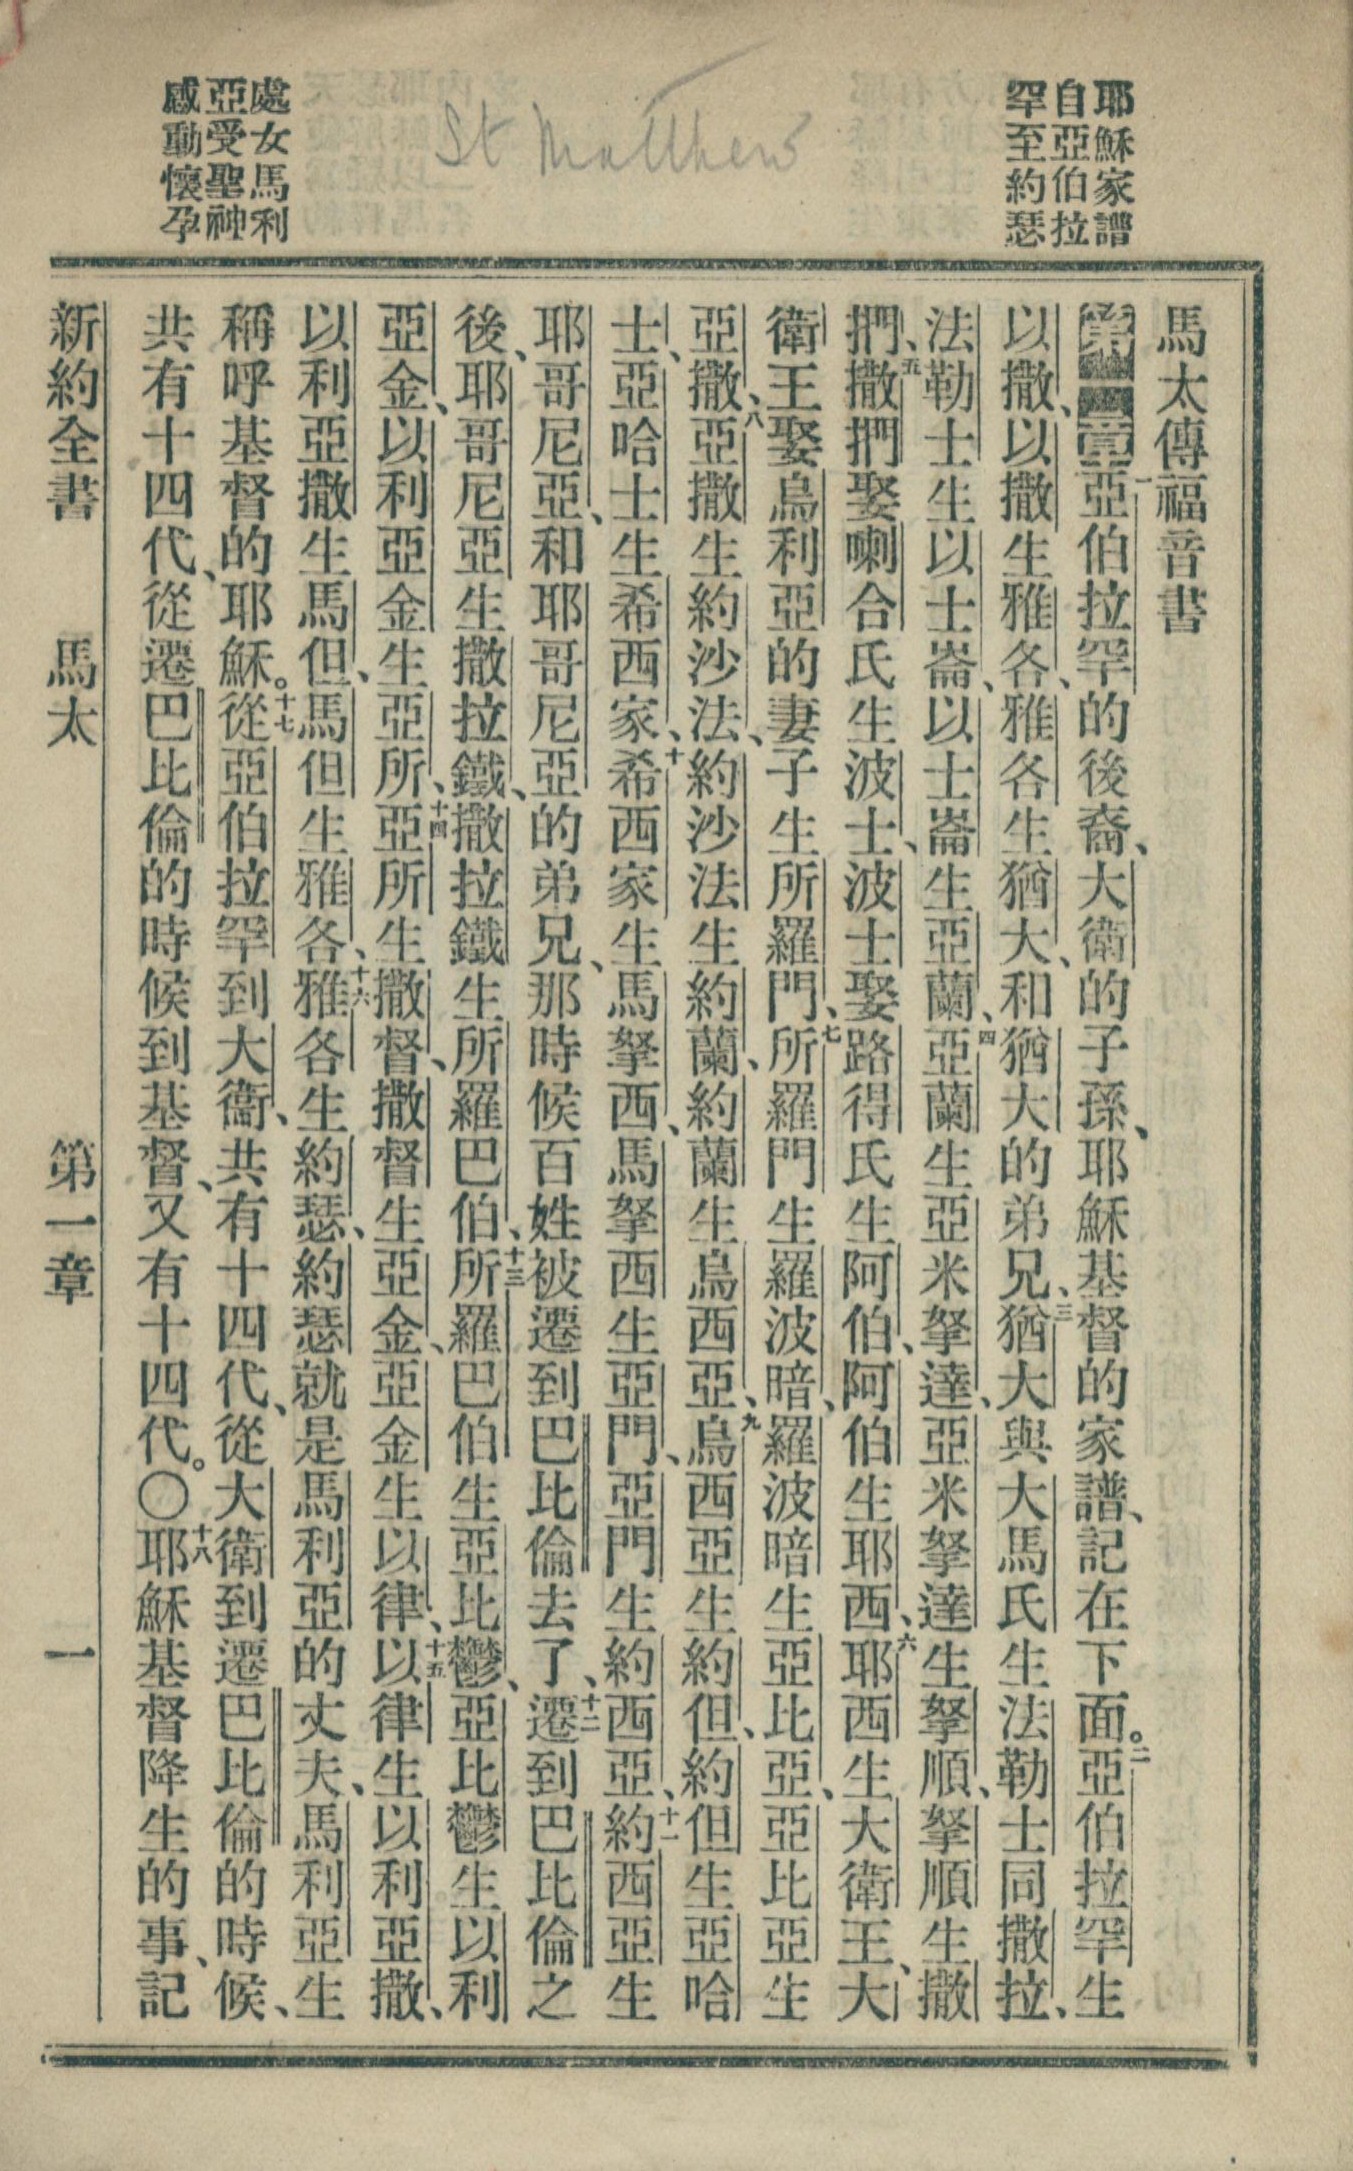 耶穌家譜
自亞伯拉
罕至約瑟
St Matthew
處女馬利
亞受聖神
感動懷孕
馬太傳福音書
第一章一亞伯拉罕的後裔、大衛的子孫、耶穌基督的家譜、記在下面。二亞伯拉罕生
以撒、以撒生雅各、雅各生猶大、和猶大的弟兄、三猶大與大馬氏生法勒士同撒拉、
法勒士生以士崙、以士崙生亞蘭、四亞蘭生亞米拏達、亞米拏達生拏順、拏順生撒
捫、五撒捫娶喇合氏生波士、波士娶路得氏生阿伯、阿伯生耶西、六耶西生大衛王、大
衛王娶烏利亞的妻子生所羅門、七所羅門生羅波暗、羅波暗生亞比亞、亞比亞生
亞撒、八亞撒生約沙法、約沙法生約蘭、約蘭生烏西亞、九烏西亞生約但、約但生亞哈
士、亞哈士生希西家、十希西家生馬拏西、馬拏西生亞門、亞門生約西亞、十一約西亞生
耶哥尼亞、和耶哥尼亞的弟兄、那時候百姓被遷到巴比倫去了、十二遷到巴比倫之
後、耶哥尼亞生撒拉鐵、撒拉鐵生所羅巴伯、十三所羅巴伯生亞比鬱、亞比鬱生以利
亞金、以利亞金生亞所、十四亞所生撒督、撒督生亞金、亞金生以律、十五以律生以利亞撒、
以利亞撒生馬但、馬但生雅各、十六雅各生約瑟、約瑟就是馬利亞的丈夫、馬利亞生
稱呼基督的耶穌。十七從亞伯拉罕到大衛、共有十四代、從大衛到遷巴比倫的時候、
共有十四代、從遷巴比倫的時候到基督、又有十四代。〇十八耶穌基督降生的事、記
新約全書 馬太 第一章 一